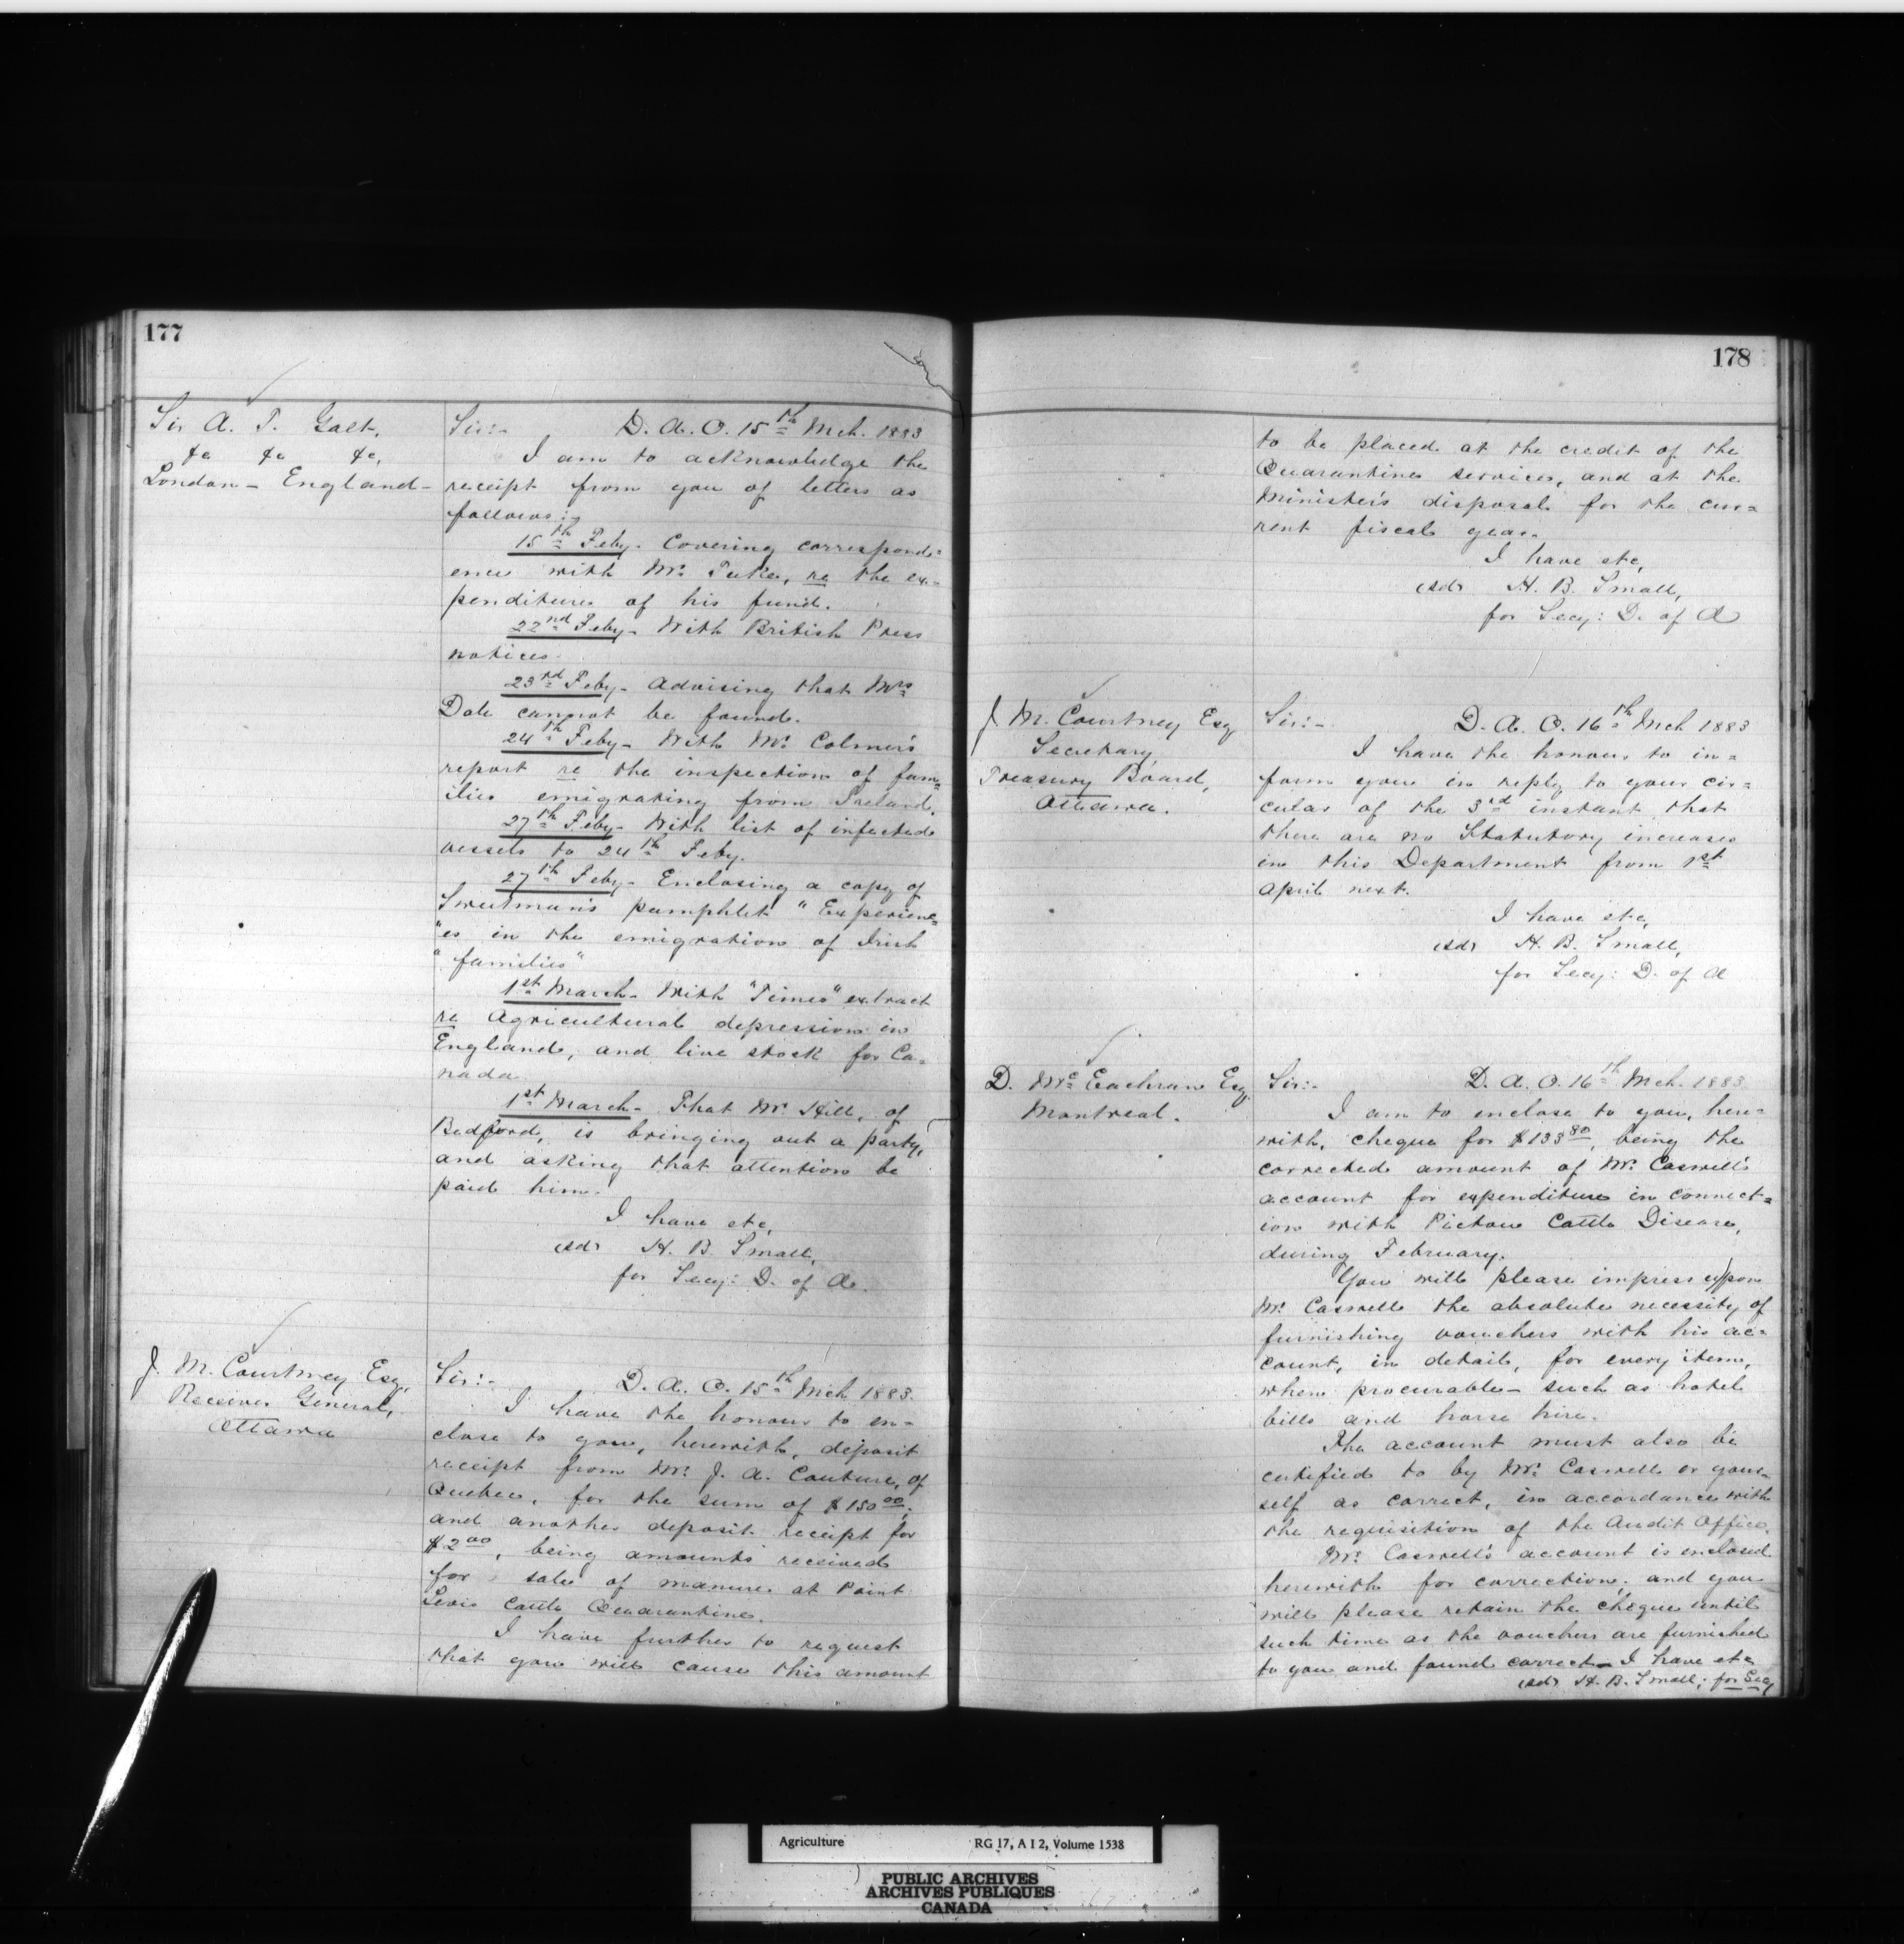 177
Sir A. T. Galt,
&c &c &c,
London - England -
Sir:- D. A. O. 15th Mch. 1883
I am to acknowledge the
receipt from you of letters as
follows:-
15th Feby - Covering correspond=
ence with Mr. Tuke, re the ex-
penditure of his fund.
22nd Feby - With British Press
notices.
23rd Feby - Advising that Mrs
Dale cannot be found.
24th Feby - With Mr. Colmer's
report re the inspection of fam=
ilies emigrating from Ireland.
27th Feby - With list of infected
vessels to 24th Feby.
27th Feby - Enclosing a copy of
Sweetman's pamphlet "Experienc=
"es in the emigration of Irish
"families"
1st March - With "Times" extract
re Agricultural depression in
England, and live stock for Ca=
nada
1st March - That Mr. Hill, of
Bedford, is bringing out a party,
and asking that attention be
paid him.
I have etc,
(sd) H. B. Small,
for Secy: D. of A.
J. M. Courtney Esq,
Receiver General,
Ottawa
Sir:- D. A. O. 15th Mch 1883.
I have the honour to en=
close to you, herewith, deposit
receipt from Mr. J. A. Couture, of
Quebec, for the sum of $150 00,
and another deposit receipt for
$2 00, being amounts received
for sale of manure at Point
Levis Cattle Quarantine.
I have further to request
that you will cause this amount
178
to be placed at the credit of the
Quarantine services, and at the
Minister's disposal for the cur=
rent fiscal year.
I have etc,
(sd) H. B. Small,
for Secy: D. of A
J. M. Courtney Esq
Secretary,
Treasury Board,
Ottawa.
Sir:- D. A. O. 16th Mch 1883
I have the honour to in=
form you in reply to your cir=
cular of the 3rd instant that
there are no Statutory increases
in this Department from 1st
April next.
I have etc,
(sd) H. B. Small,
for Secy: D. of A
D. McEachran Esq
Montreal.
Sir:- D. A. O. 16th Mch. 1883
I am to enclose to you, here=
with, cheque for $133 80, being the
corrected amount of Mr. Caswell's
account for expenditure in connect=
ion with Pictou Cattle Disease,
during February.
You will please impress upon
Mr. Caswell the absolute necessity of
furnishing vouchers with his ac=
count, in detail, for every item,
when procurable - such as hotel
bills and horse hire.
The account must also be
certified to by Mr. Caswell or your=
self as correct, in accordance with
the requisition of the Audit Office.
Mr. Caswell's account is enclosed
herewith for correction, and you
will please retain the cheque until
such time as the vouchers are furnished
to you and found correct - I have etc
(sd) H. B. Small, for Secy
Agriculture RG 17, A I 2, Volume 1538
PUBLIC ARCHIVES
ARCHIVES PUBLIQUES
CANADA